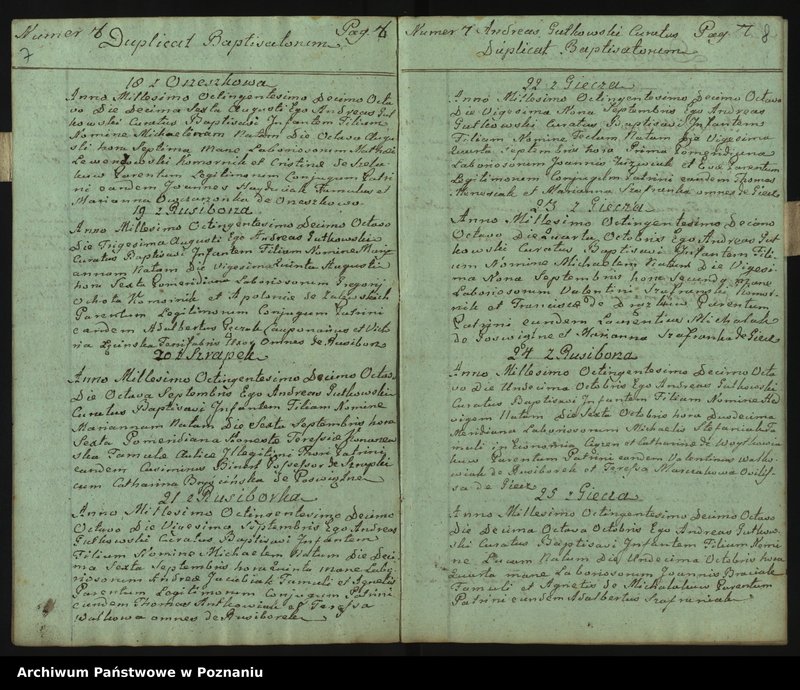 Numer 6 Pag. 6
7
Duplicat Baptisatorum
18 z Orzeszkowa
Anno Millesimo Octingentesimo Decimo Octa
vo Die Decima Sexta Augusti Ego Andreas Gut
kowski Curatus Baptisavi Infantem Filiam
Nomine Natam Die Octava Augu
sti hora Septima Mane Laboriosorum
Komornik et Cristine de
Parentum Legitimorum Conjugum Patri
ni eandem Joannes Famulus et
Marianna de Orzeszkowo
19 z Rusiborza
Anno Millesimo Octingentesimo Decimo Octavo
Die Trigesima Augusti Ego Andreas Gutkowski
Curatus Baptisavi Infantem Filiam Nomine Mari
annam Natam Die Vigesima Quinta Augusti
hora Sexta Pomeridiana Laboriosorum Gregorij
Komornik et Apolonie de
Parentum Legitimorum Conjugum Patrini
eandem Adalbertus et Victo
ria Omnes de
20 z Szrapek
Anno Millesimo Octingentesimo Decimo Octavo
Die Octava Septembris Ego Andreas Gutkowski
Curatus Baptisavi Infantem Filiam Nomine
Mariannam Natam Die Sexta Septembris hora
Sexta Pomeridiana Honeste Teresie
Famule Aulice Illegitimi Thori Patrini
eandem Casimirus Possesor de
cum Catharina de
21 z Rusiborka
Anno Millesimo Octingentesimo Decimo
Octavo Die Vigesima Septembris Ego Andreas
Gutkowski Curatus Baptisavi Infantem
Filium Nomine Michaelem Natum Die Deci
ma Sexta Septembris hora Quinta Mane Labo
riosorum Andree Jacubiak Famuli et Agnetis
Parentum Legitimorum Conjugum Patrini
eundem Thomas et Teressa
omnes de
Numer 7 Andreas Gutkowski Curatus Pag. 7. 8
Duplicat Baptisatorum
22 z Giecza
Anno Millesimo Octingentesimo Decimo Octavo
Die Vigesima Nona Septembris Ego Andreas
Gutkowski Curatus Baptisavi Infantem
Filium Nomine Natum Die Vigesima
Quarta Septembris hora Prima Pomeridiana
Laboriosorum Joannis et Eva Parentum
Legitimorum Conjugum Patrini eundem Thomas
et Marianna Szafranka omnes de Giecz
23 z Giecza
Anno Millesimo Octingentesimo Decimo
Octavo Die Quarta Octobris Ego Andreas Gut
kowski Curatus Baptisavi Infantem Fili
um Nomine Michaelem Natum Die Vigesi
ma Nona Septembris hora Secunda Mane
Laboriosorum Valentini Komor
nik et Francisce de Parentum
Patrini eundem Laurentius Michalak
de et Marianna Szafranka de Giecz
24 z Rusiborza
Anno Millesimo Octingentesimo Decimo Octa
vo Die Undecima Octobris Ego Andreas Gutkowski
Curatus Baptisavi Infantem Filiam Nomine He
vigem Natam Die Sexta Octobris hora Duodecima
Meridiana Laboriosorum Michaelis Stefaniak Fa
muli in Economia et Catharine de
Parentum Patrini eandem Valentinus
de et Teressa
sa de Giecz
25 z Giecza
Anno Millesimo Octingentesimo Decimo Octavo
Die Decima Octava Octobris Ego Andreas Gutkow
ski Curatus Baptisavi Infantem Filium Nomi
ne Lucam Natum Die Undecima Octobris hora
Quarta mane Laboriosorum Joannis
Famuli et Agnetis de Parentum
Patrini eundem Adalbertus
Archiwum Państwowe w Poznaniu